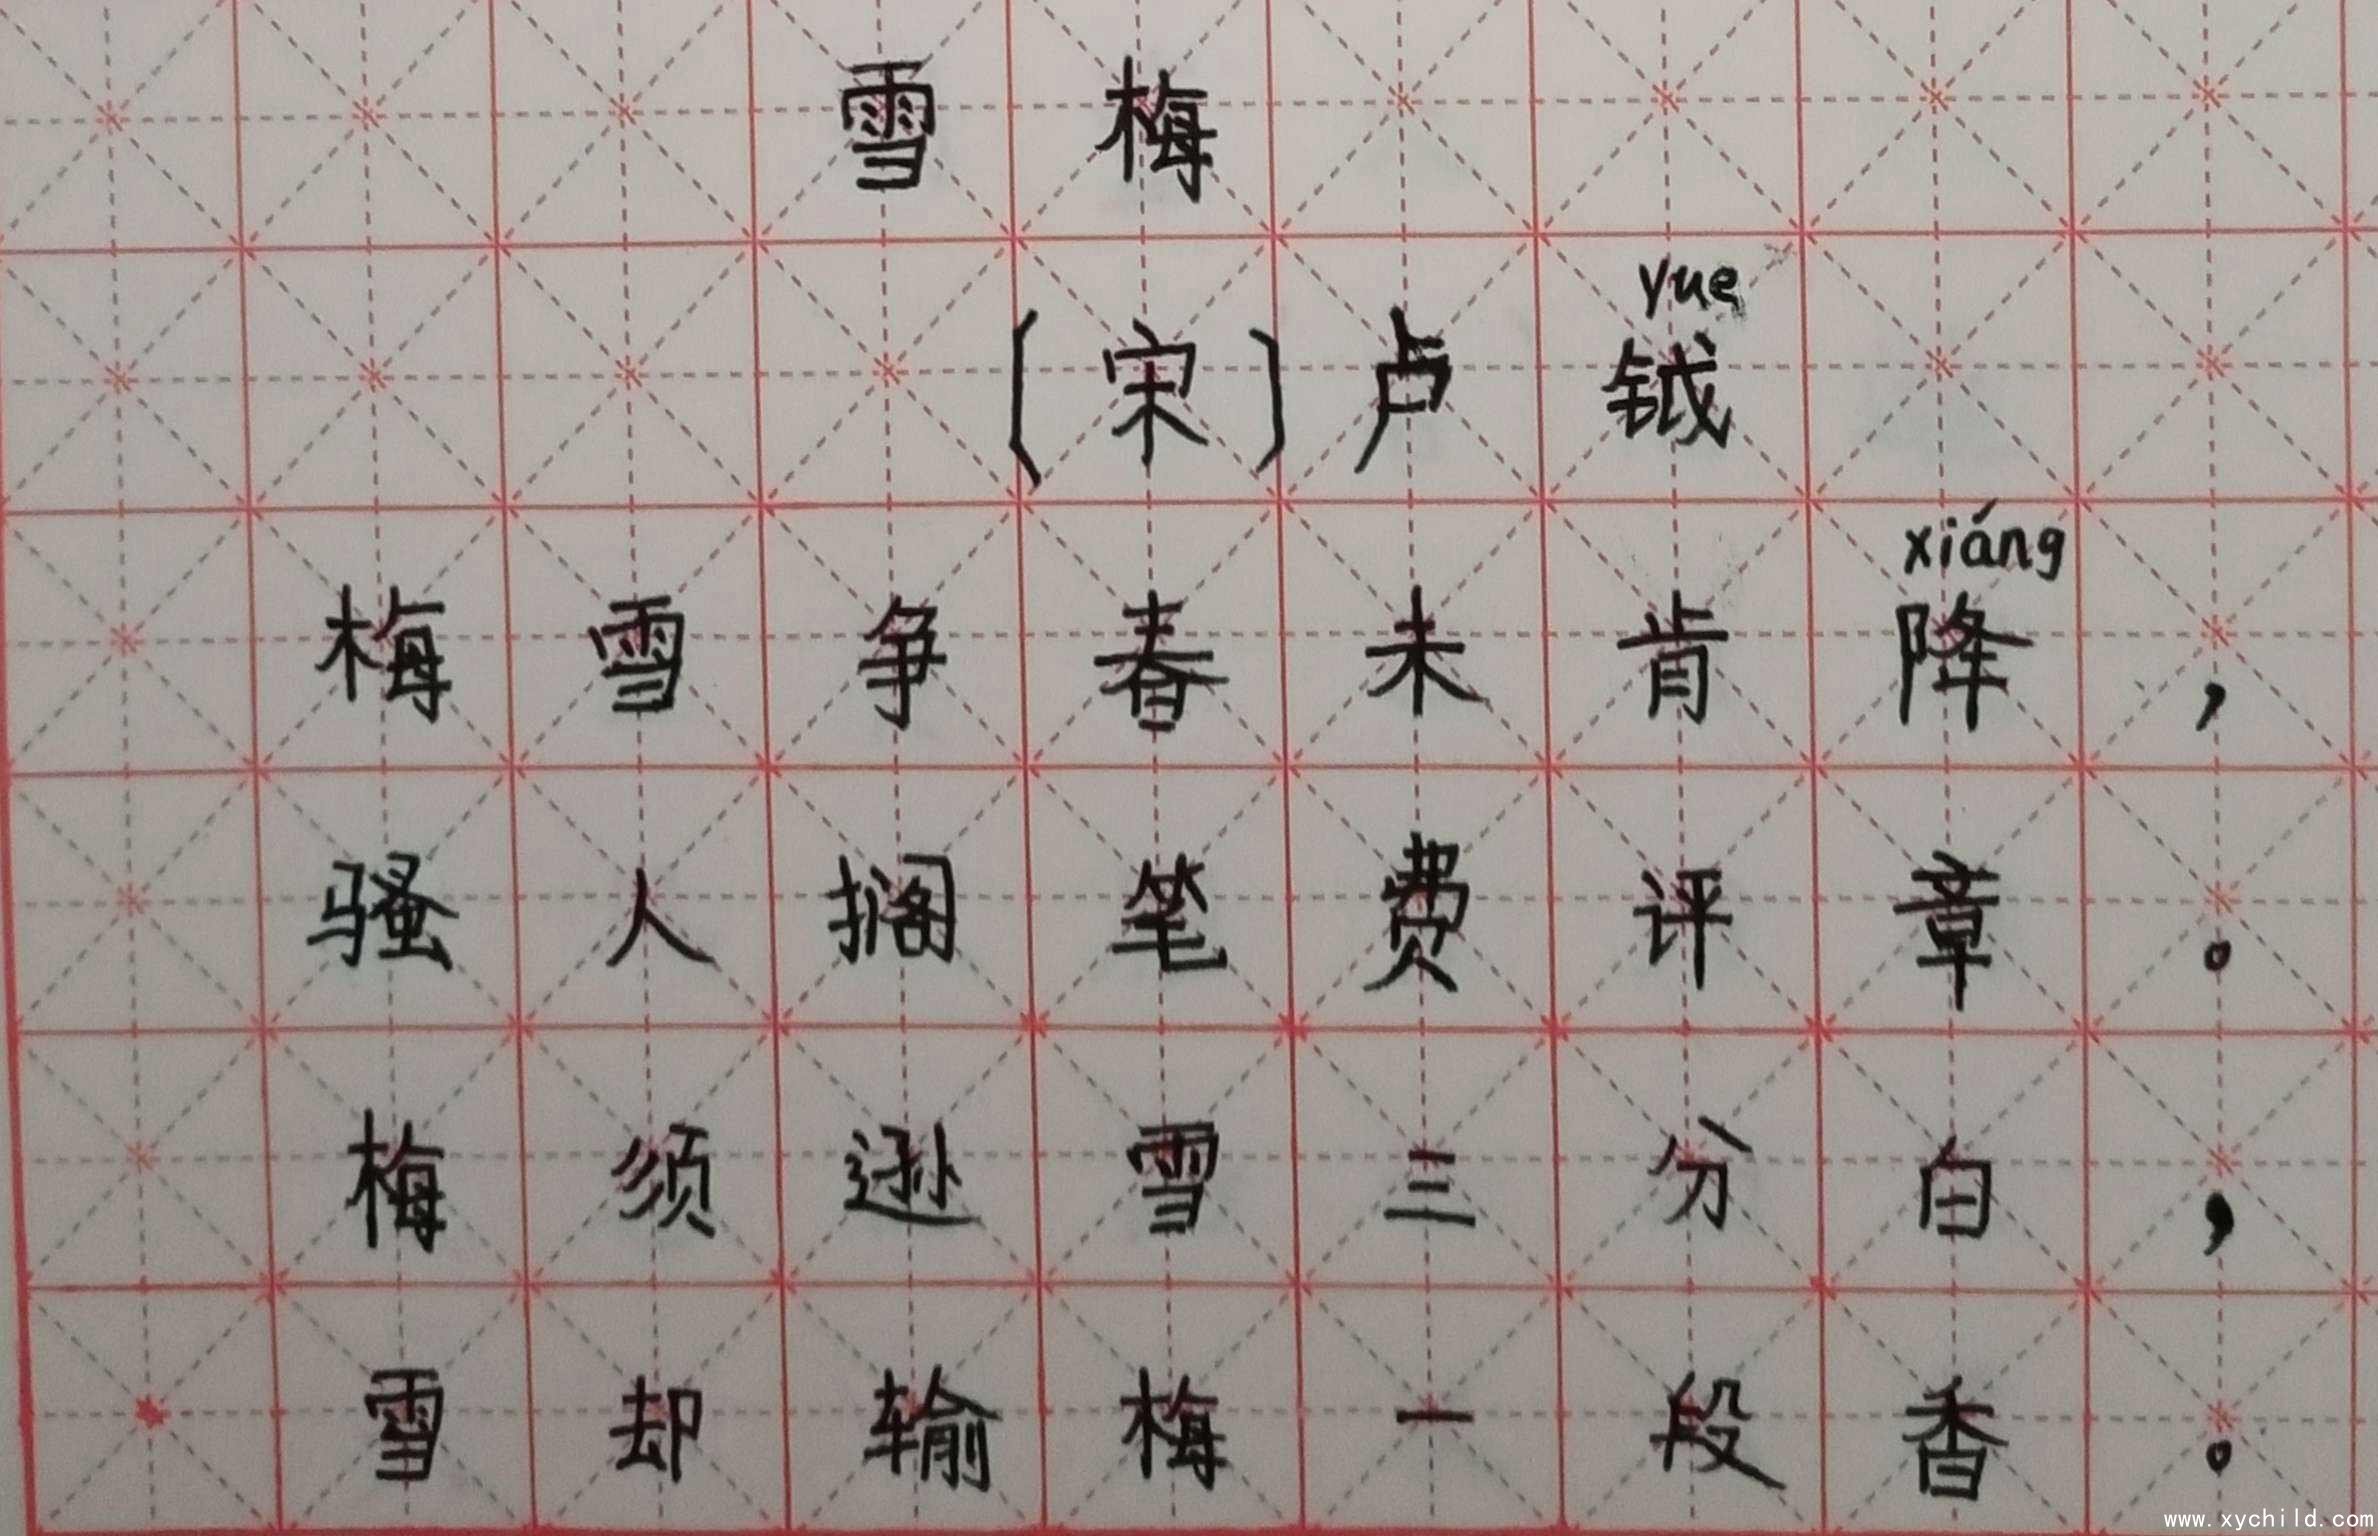 雪梅
yue
〔宋〕卢钺
xiáng
梅雪争春未肯降，
骚人搁笔费评章。
梅须逊雪三分白，
雪却输梅一段香。
www.xychild.com